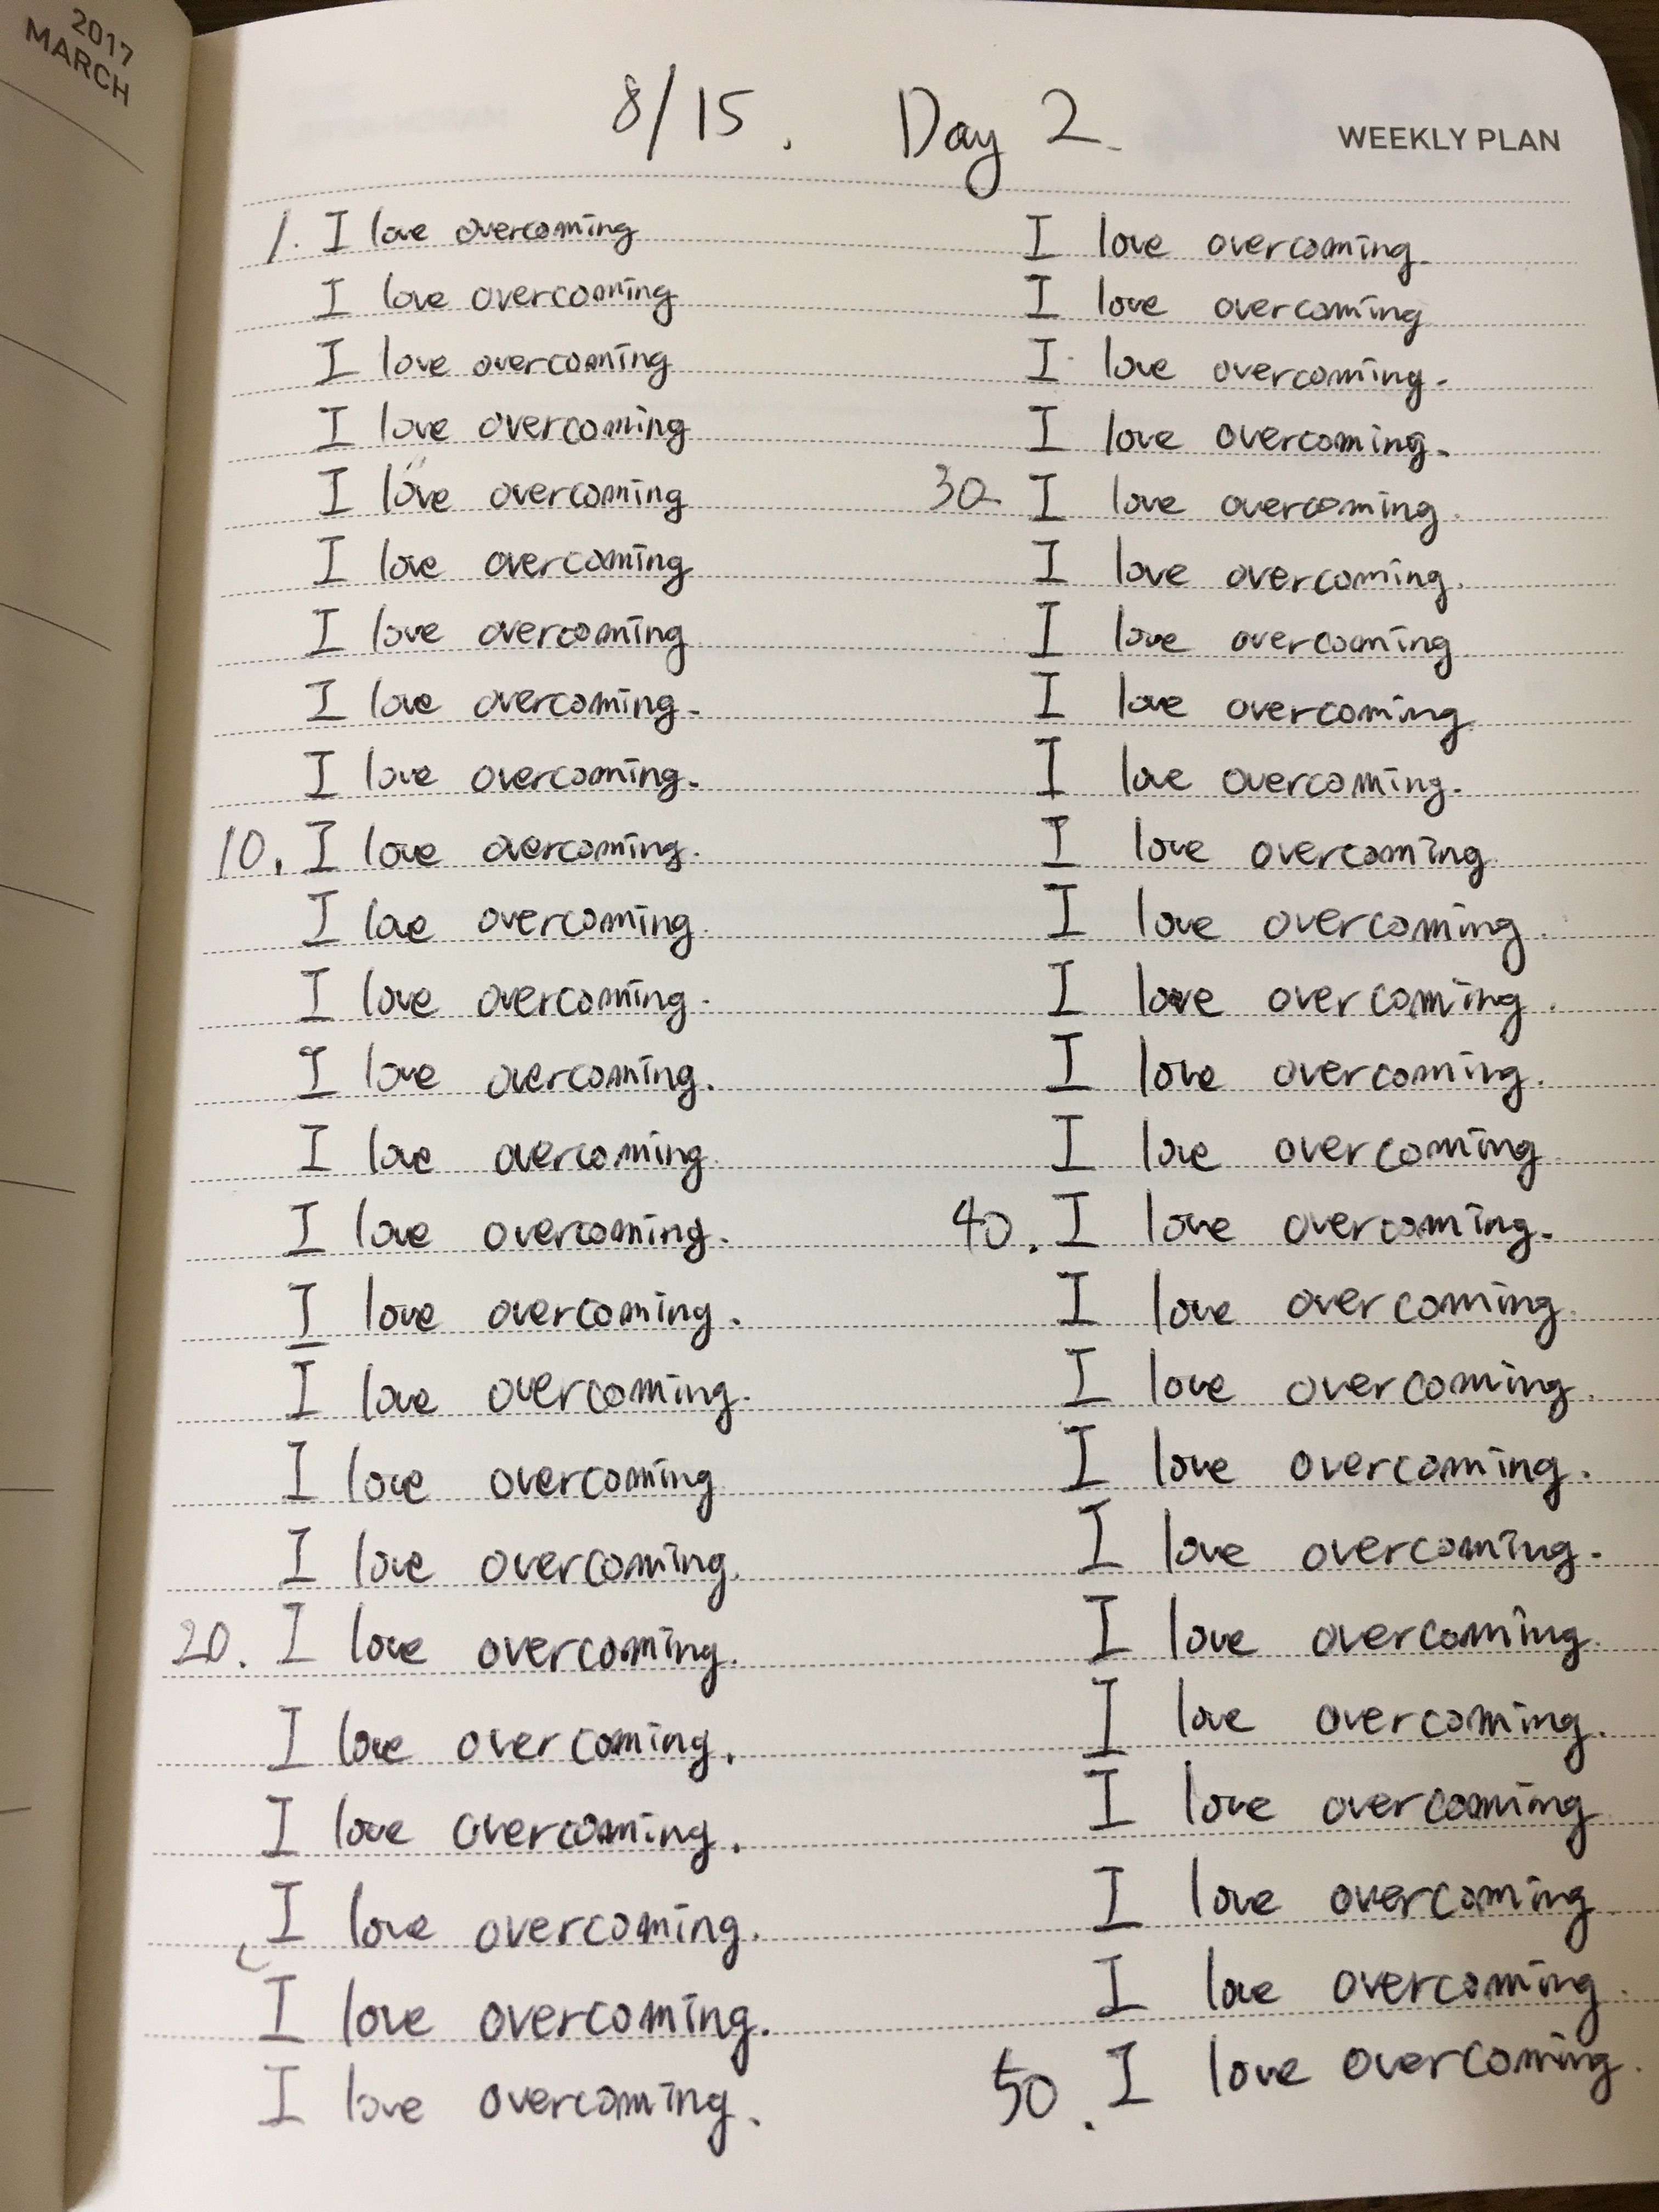 2017
MARCH
8/15. Day 2.
WEEKLY PLAN
1. I love overcoming
I love overcoming
I love overcoming
I love overcoming
I love overcoming
I love overcoming
I love overcoming
I love overcoming.
I love overcoming.
10. I love overcoming.
I love overcoming.
I love overcoming.
I love overcoming.
I love overcoming.
I love overcoming.
I love overcoming.
I love overcoming.
I love overcoming
I love overcoming.
20. I love overcoming.
I love overcoming.
I love overcoming.
I love overcoming.
I love overcoming.
I love overcoming.
I love overcoming.
I love overcoming
I love overcoming.
I love overcoming.
30. I love overcoming.
I love overcoming.
I love overcoming.
I love overcoming.
I love overcoming.
I love overcoming.
I love overcoming.
I love overcoming.
I love overcoming.
I love overcoming.
40. I love overcoming.
I love overcoming.
I love overcoming.
I love overcoming.
I love overcoming.
I love overcoming.
I love overcoming.
I love overcoming
I love overcoming.
I love overcoming.
50. I love overcoming.